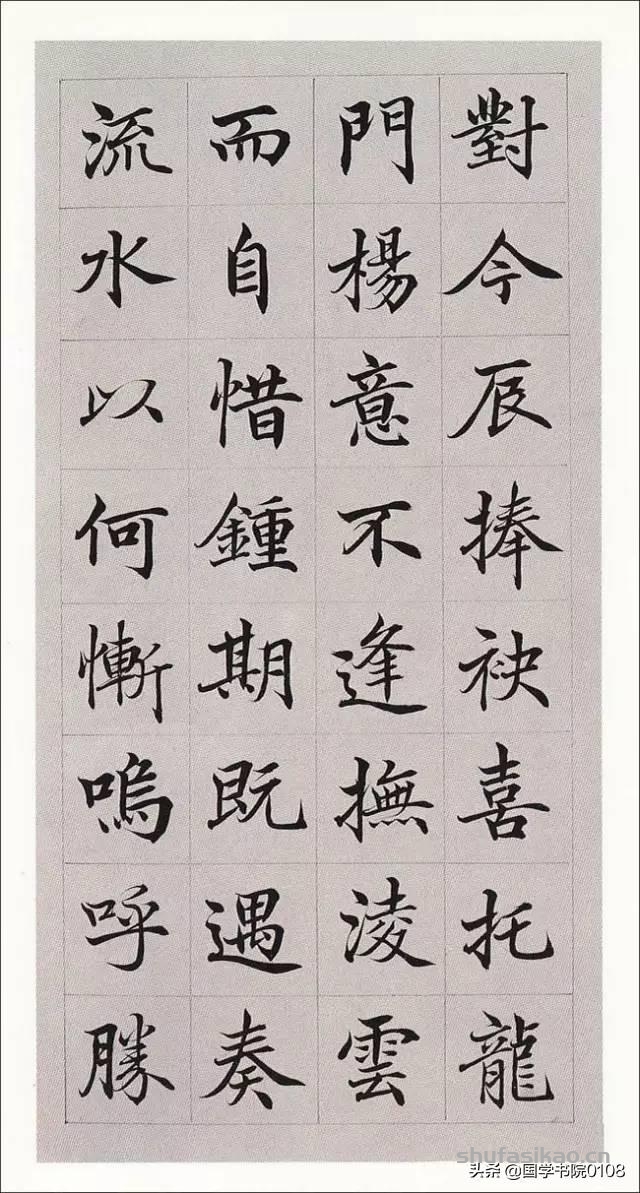 對今辰捧袂喜托龍
門楊意不逢撫淩雲
而自惜鍾期既遇奏
流水以何慚嗚呼勝
shufasikao.cn
头条 @国学书院0108